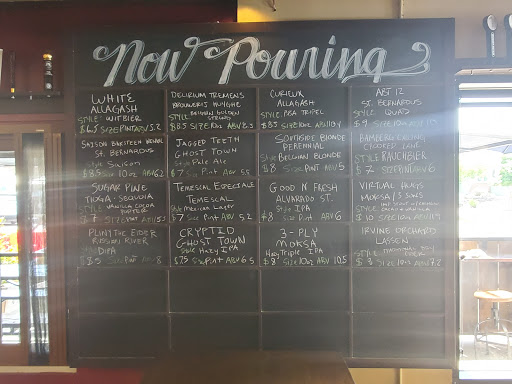 Now Pouring
WHITE
ALLAGASH
STYLE: WITBIER
$6.5 SIZE PINT ABV 5.2
DELIRIUM TREMENS
BROUWERIJ HUYGHE
BELGIAN GOLDEN
STRONG
$8.5 SIZE 10oz ABV 8.5
CURIEUX
ALLAGASH
STYLE: BBA TRIPEL
$8.5 SIZE 10oz ABV
ABT 12
ST. BERNARDUS
STYLE QUAD
$9 SIZE 10oz ABV
SAISON
ST. BERNARDUS
Style Saison
$8.5 10oz
JAGGED TEETH
GHOST TOWN
Style Pale Ale
$7 Size Pint ABV 5.5
SOUTHSIDE BLONDE
PERENNIAL
Style BELGIAN BLONDE
$8 Size PINT ABV 5
STYLE RAUCHBIER
$7 SIZE PINT ABV
SUGAR PINE
TIOGA-SEQUOIA
STYLE: VANILLA COCOA
PORTER
$7 SIZE PINT ABV
TEMESCAL ESPECIALE
TEMESCAL
Style Mexican Lager
$7 Size Pint ABV 5.2
GOOD N FRESH
ALVARADO ST.
Style IPA
$8 Size Pint ABV 6
VIRTUAL HUGS
$10 SPECIAL ABV
PLINY THE ELDER
RUSSIAN RIVER
DIPA
$8.5 Size Pint ABV 8
CRYPTID
GHOST TOWN
Style Hazy IPA
$7.5 Size Pint ABV 6.5
3-PLY
MOKSA
Hazy Triple IPA
$8 Size 10oz ABV 10.5
IRVINE ORCHARD
LASSEN
$8 SIZE 10oz ABV 7.8